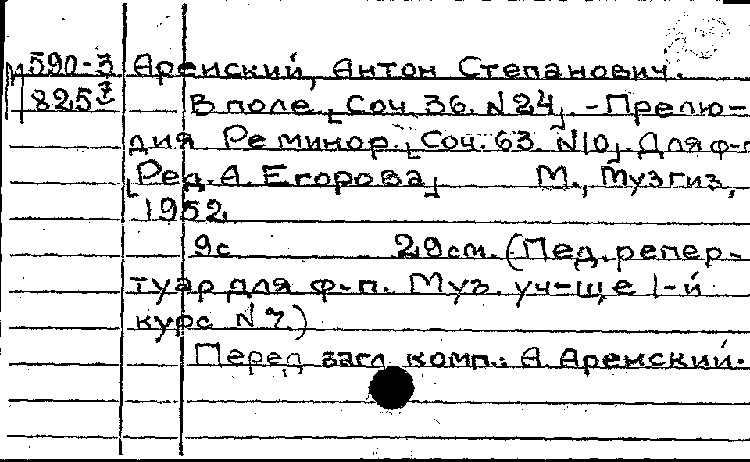 М 590-3 Аренский, Антон Степанович.
825 В поле [Соч 36. N 24]. - Прелю-
дия Ре минор. [Соч. 63. N10]. Для ф-п
[Ред. А. Егорова] М., Музгиз,
1952
9с 29см. (Пед. репер-
туар для ф-п. Муз. уч-ще 1-й
курс N 7.)
Перед загл комп.: А Аренский.